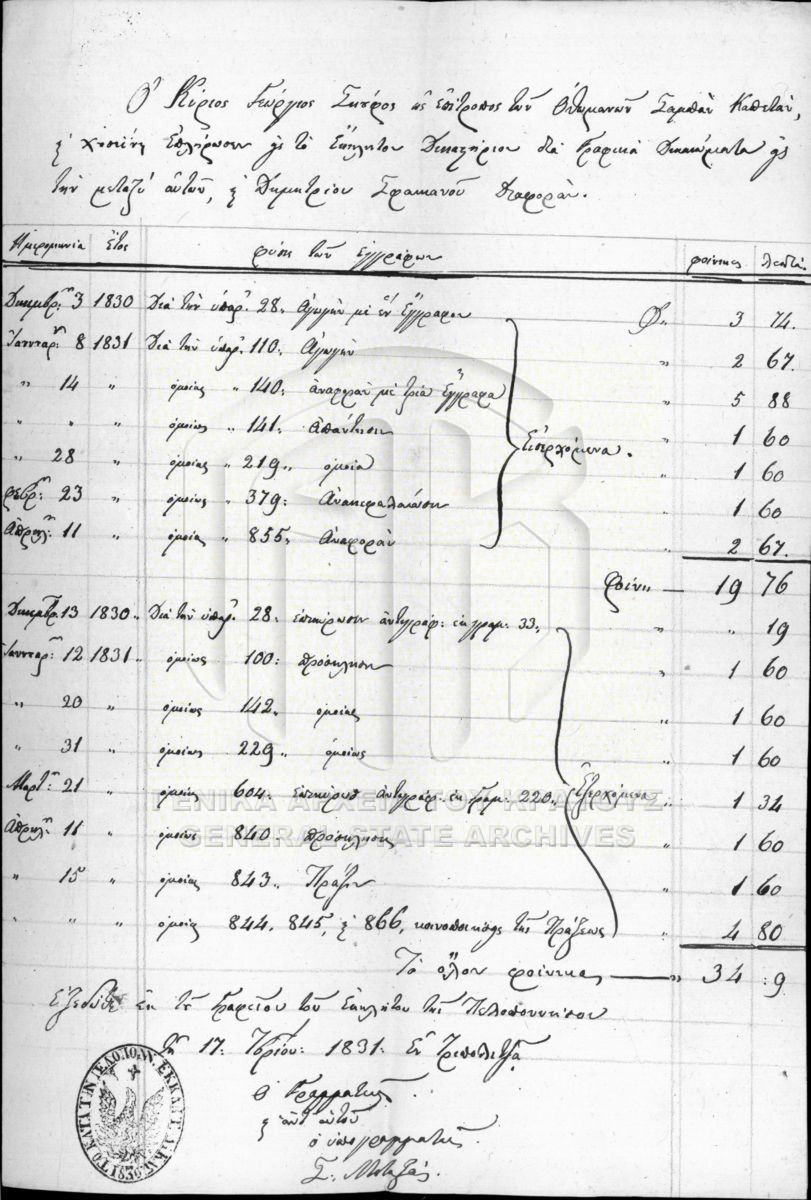 Ὁ Κύριος Γεώργιος Σκύρος ὡς ἐπίτροπος τῶν Ὀθωμανῶν Σαμπὰν Καπετὰν,
ἐπλήρωσεν εἰς τὸ Ἔκκλητον Δικαστήριον διὰ Γραφικὰ Δικαιώματα εἰς
τὴν μεταξὺ αὐτῶν, καὶ Δημητρίου Διαφοράν.
Ἡμερομηνία Ἔτος φύσις τῶν ἐγγράφων φοίνικες λεπτά
Δεκεμβρ: 3 1830 Διὰ τὴν ὑπαρ. 28 " Ἀγωγὴν μὲ ἓν ἔγγραφον Φ " 3 74.
Ἰανουαρ: 8 1831 Διὰ τὴν ὑπαρ. 110 " Ἀγωγὴν " 2 67.
" 14 " ὁμοίως " 140 " ἀναφορὰν μὲ τρία ἔγγραφα " 5 88
" " " ὁμοίως " 141 " Ἀπάντησιν " 1 60
" 28 " ὁμοίως " 219 " ὁμοία " 1 60
φεβρ: 23 " ὁμοίως " 379 : Ἀνακεφαλαίωσιν " 1 60
Ἀπριλ: 11 " ὁμοίως " 855 " Ἀναφορὰν " 2 67.
Εἰσερχόμενα.
φοίν: — 19 76
Δεκεμβρ. 13 1830 " Διὰ τὴν ὑπαρ. 28 " ἐπικύρωσιν ἀντιγράφ: ἐκ γραμ: 33 " " " 19
Ἰανουαρ: 12 1831 " ὁμοίως 100 : πρόσκλησιν " 1 60
" 20 " ὁμοίως 142 " ὁμοίως " 1 60
" 31 " ὁμοίως 229 " ὁμοίως " 1 60
Μαρτ: 21 " ὁμοίως 604 " ἀντιγράφ. ἐκ γραμ: 220 " " 1 34
Ἀπριλ: 11 " ὁμοίως 840 " πρόσκλησις " 1 60
" 15 " ὁμοίως 843 " Πρᾶξιν " 1 60
" " " ὁμοίως 844, 845, καὶ 866, τῆς Πράξεως " 4 80
Ἐξερχόμενα
Τὸ ὅλον φοίνικας — " 34 : 9
Ἐξεδόθη ἐκ τοῦ Γραφείου τοῦ Ἐκκλήτου τῆς Πελοποννήσου
Τῇ 17: 7βρίου: 1831: Ἐν Τριπολιτζᾷ
Ὁ Γραμματεὺς
καὶ ἀντ' αὐτοῦ
ὁ ὑπογραμματεὺς
Σ. Μεταξᾶς.
ΓΕΝΙΚΑ ΑΡΧΕΙΑ ΤΟΥ ΚΡΑΤΟΥΣ
GENERAL STATE ARCHIVES